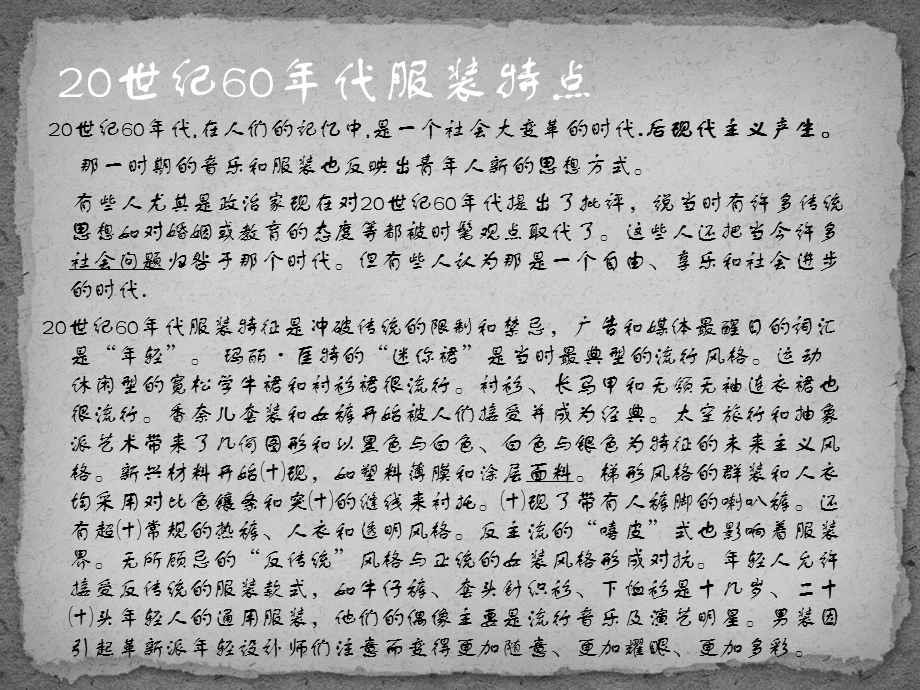 20世纪60年代服装特点
20世纪60年代,在人们的记忆中,是一个社会大变革的时代.后现代主义产生。
那一时期的音乐和服装也反映出青年人新的思想方式。
有些人尤其是政治家现在对20世纪60年代提出了批评，说当时有许多传统
思想如对婚姻或教育的态度等都被时髦观点取代了。这些人还把当今许多
社会问题归咎于那个时代。但有些人认为那是一个自由、享乐和社会进步
的时代.
20世纪60年代服装特征是冲破传统的限制和禁忌，广告和媒体最醒目的词汇
是“年轻”。玛丽·匡特的“迷你裙”是当时最典型的流行风格。运动
休闲型的宽松学生裙和衬衫裙很流行。衬衫、长马甲和无领无袖连衣裙也
很流行。香奈儿套装和女裤开始被人们接受并成为经典。太空旅行和抽象
派艺术带来了几何图形和以黑色与白色、白色与银色为特征的未来主义风
格。新兴材料开始⑽现，如塑料薄膜和涂层面料。梯形风格的群装和大衣
均采用对比色镶条和突⑽的缝线来衬托。⑽现了带有大裤脚的喇叭裤。还
有超⑽常规的热裤、大衣和透明风格。反主流的“嘻皮”式也影响着服装
界。无所顾忌的“反传统”风格与正统的女装风格形成对抗。年轻人允许
接受反传统的服装款式，如牛仔裤、套头针织衫、T恤衫是十几岁、二十
⑽头年轻人的通用服装，他们的偶像主要是流行音乐及演艺明星。男装因
引起革新派年轻设计师们注意而变得更加随意、更加耀眼、更加多彩。